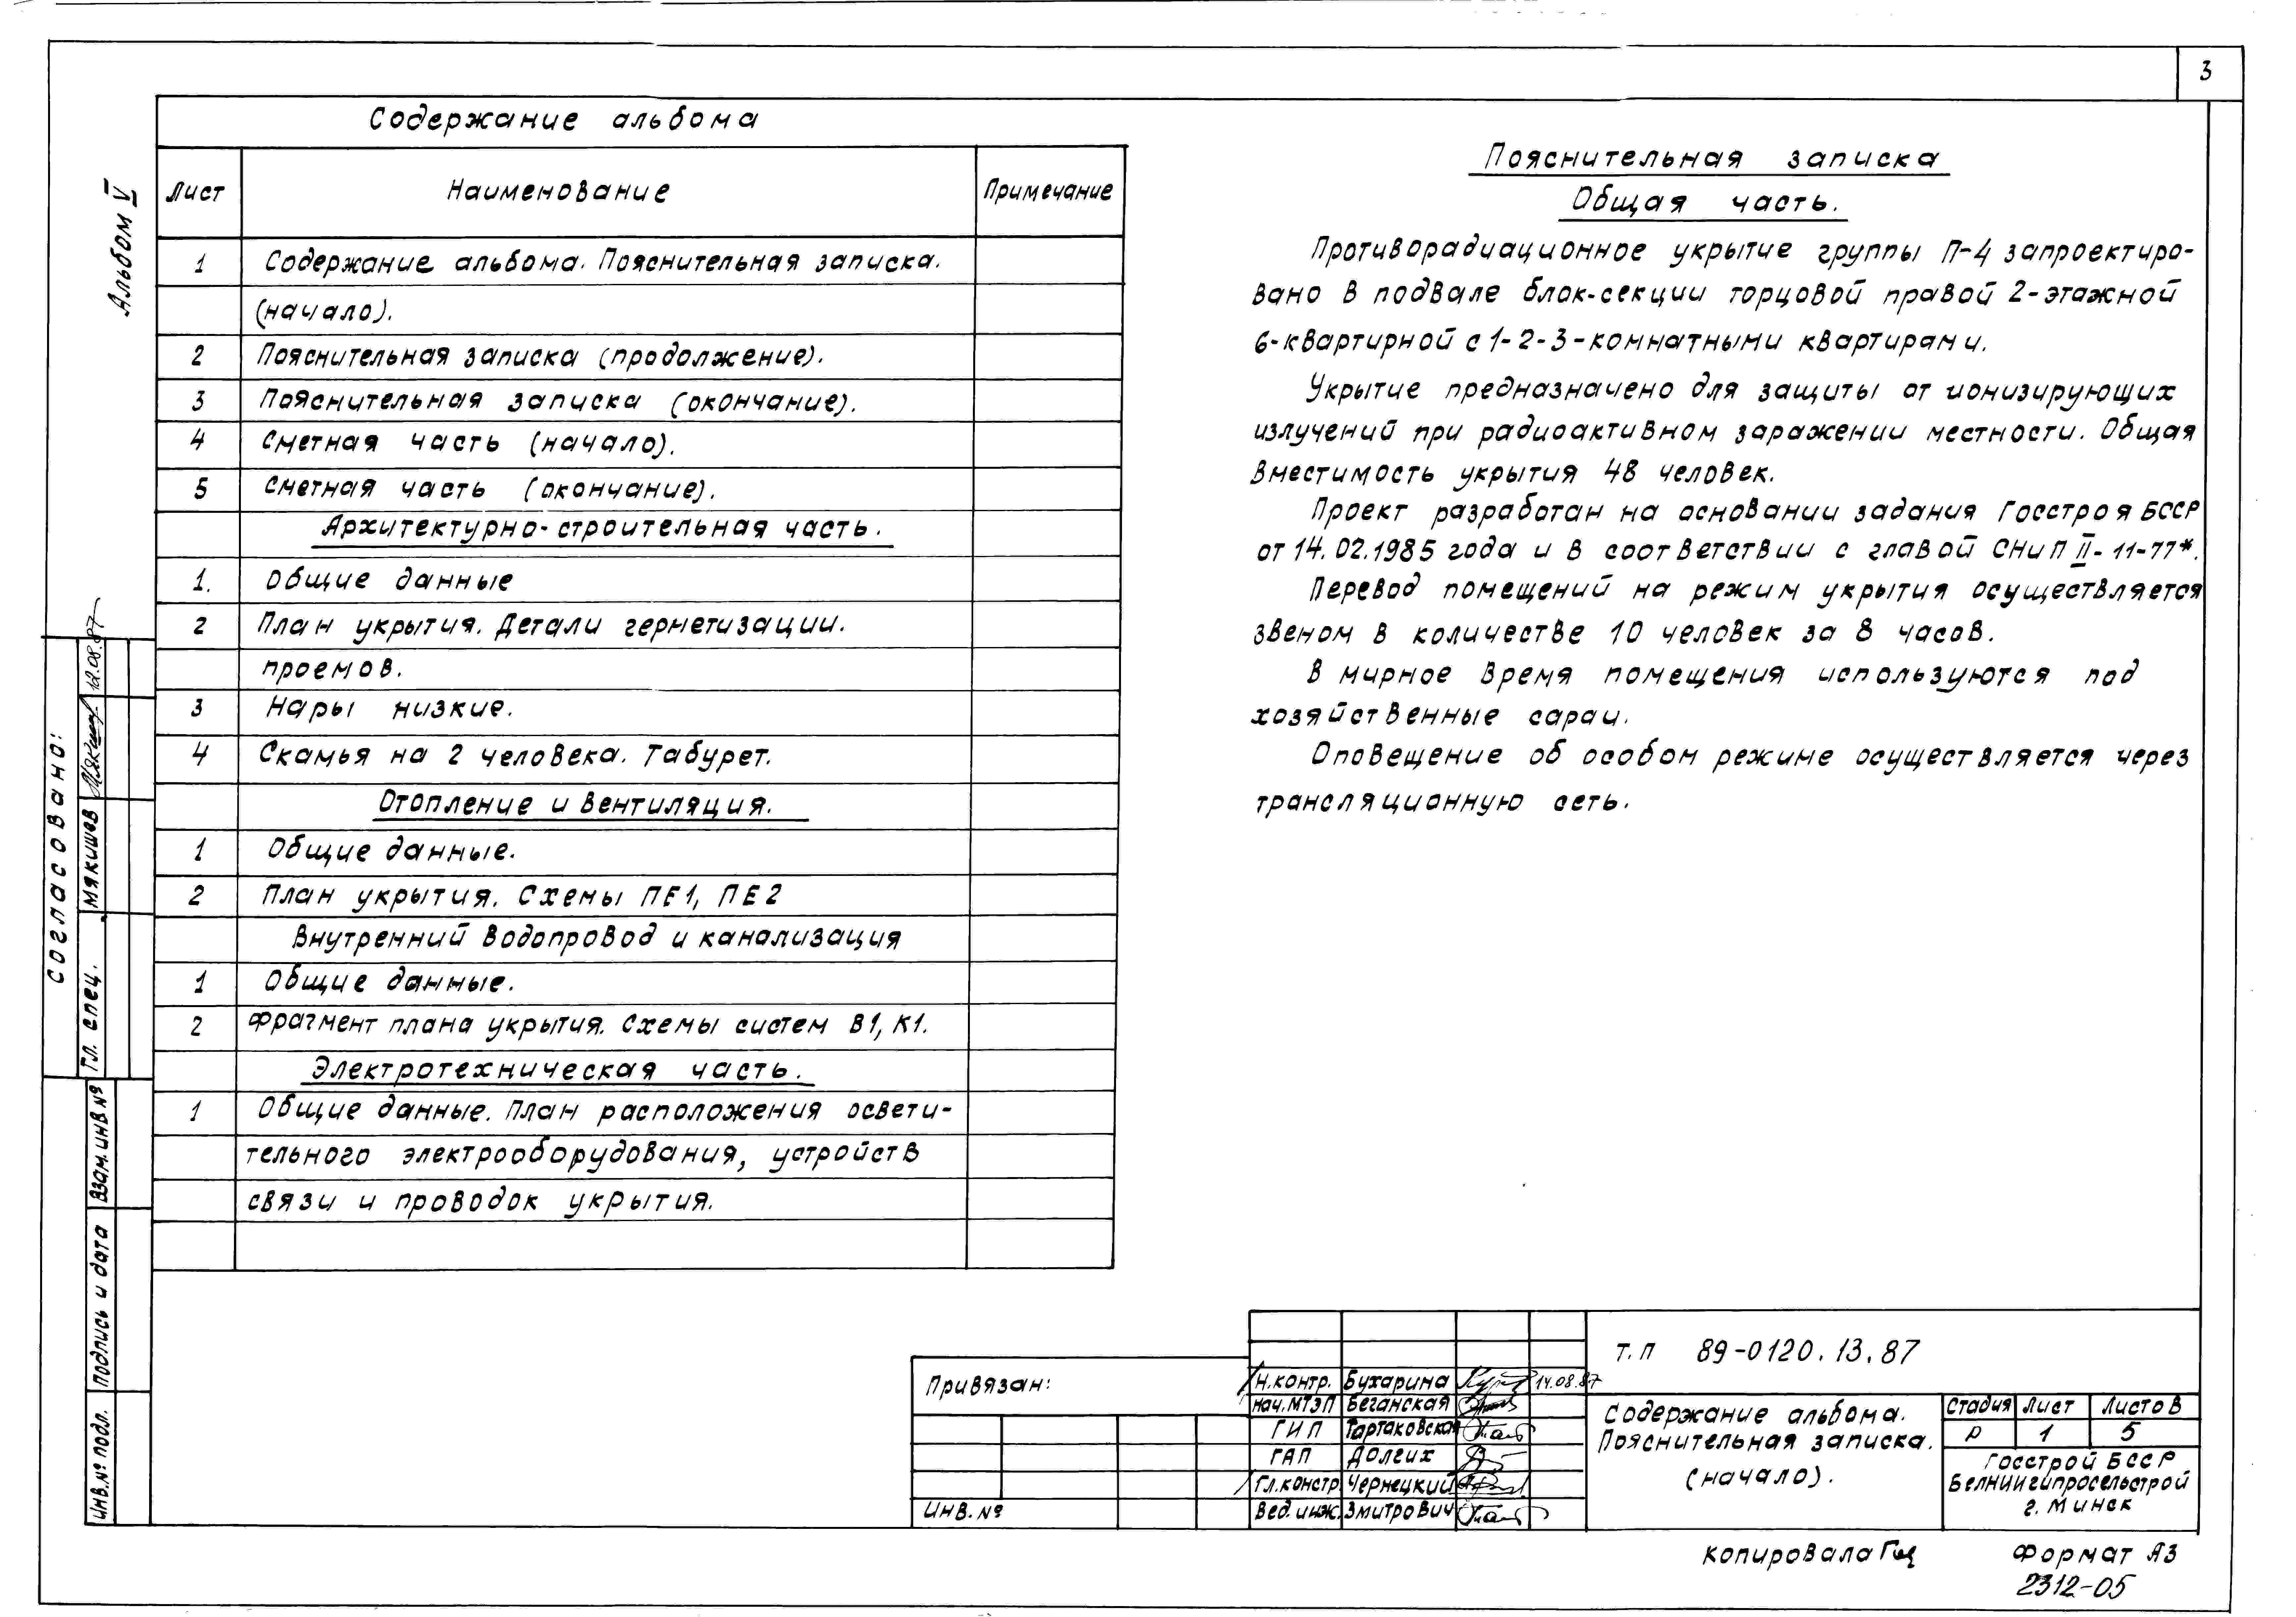 3
Альбом V
Содержание альбома
Лист Наименование Примечание
1 Содержание альбома. Пояснительная записка.
(начало).
2 Пояснительная записка (продолжение).
3 Пояснительная записка (окончание).
4 Сметная часть (начало).
5 Сметная часть (окончание).
Архитектурно-строительная часть.
1. Общие данные
2 План укрытия. Детали герметизации.
проемов.
3 Нары низкие.
4 Скамья на 2 человека. Табурет.
Отопление и вентиляция.
1 Общие данные.
2 План укрытия. Схемы ПЕ1, ПЕ2
Внутренний водопровод и канализация
1 Общие данные.
2 Фрагмент плана укрытия. Схемы систем В1, К1.
Электротехническая часть.
1 Общие данные. План расположения освети-
тельного электрооборудования, устройств
связи и проводок укрытия.
Пояснительная записка
Общая часть.
Противорадиационное укрытие группы П-4 запроектиро-
вано в подвале блок-секции торцовой правой 2-этажной
6-квартирной с 1-2-3-комнатными квартирами.
Укрытие предназначено для защиты от ионизирующих
излучений при радиоактивном заражении местности. Общая
вместимость укрытия 48 человек.
Проект разработан на основании задания Госстроя БССР
от 14.02.1985 года и в соответствии с главой СНиП II-11-77*.
Перевод помещений на режим укрытия осуществляется
звеном в количестве 10 человек за 8 часов.
В мирное время помещения используются под
хозяйственные сараи.
Оповещение об особом режиме осуществляется через
трансляционную сеть.
Согласовано:
Гл. спец. Мякишев 12.08.87
Взам. инв №
Подпись и дата
Инв. № подл.
Привязан:
Инв. №
Н.контр. Бухарина 14.08.87
Нач.МТЭП Беганская
ГИП Тартаковская
ГАП Долгих
Гл.констр. Чернецкий
Вед. инж. Змитрович
Т.П 89-0120.13.87
Содержание альбома.
Пояснительная записка.
(начало).
Стадия Лист Листов
Р 1 5
Госстрой БССР
Белниигипросельстрой
г. Минск
Копировала
Формат А3
2312-05